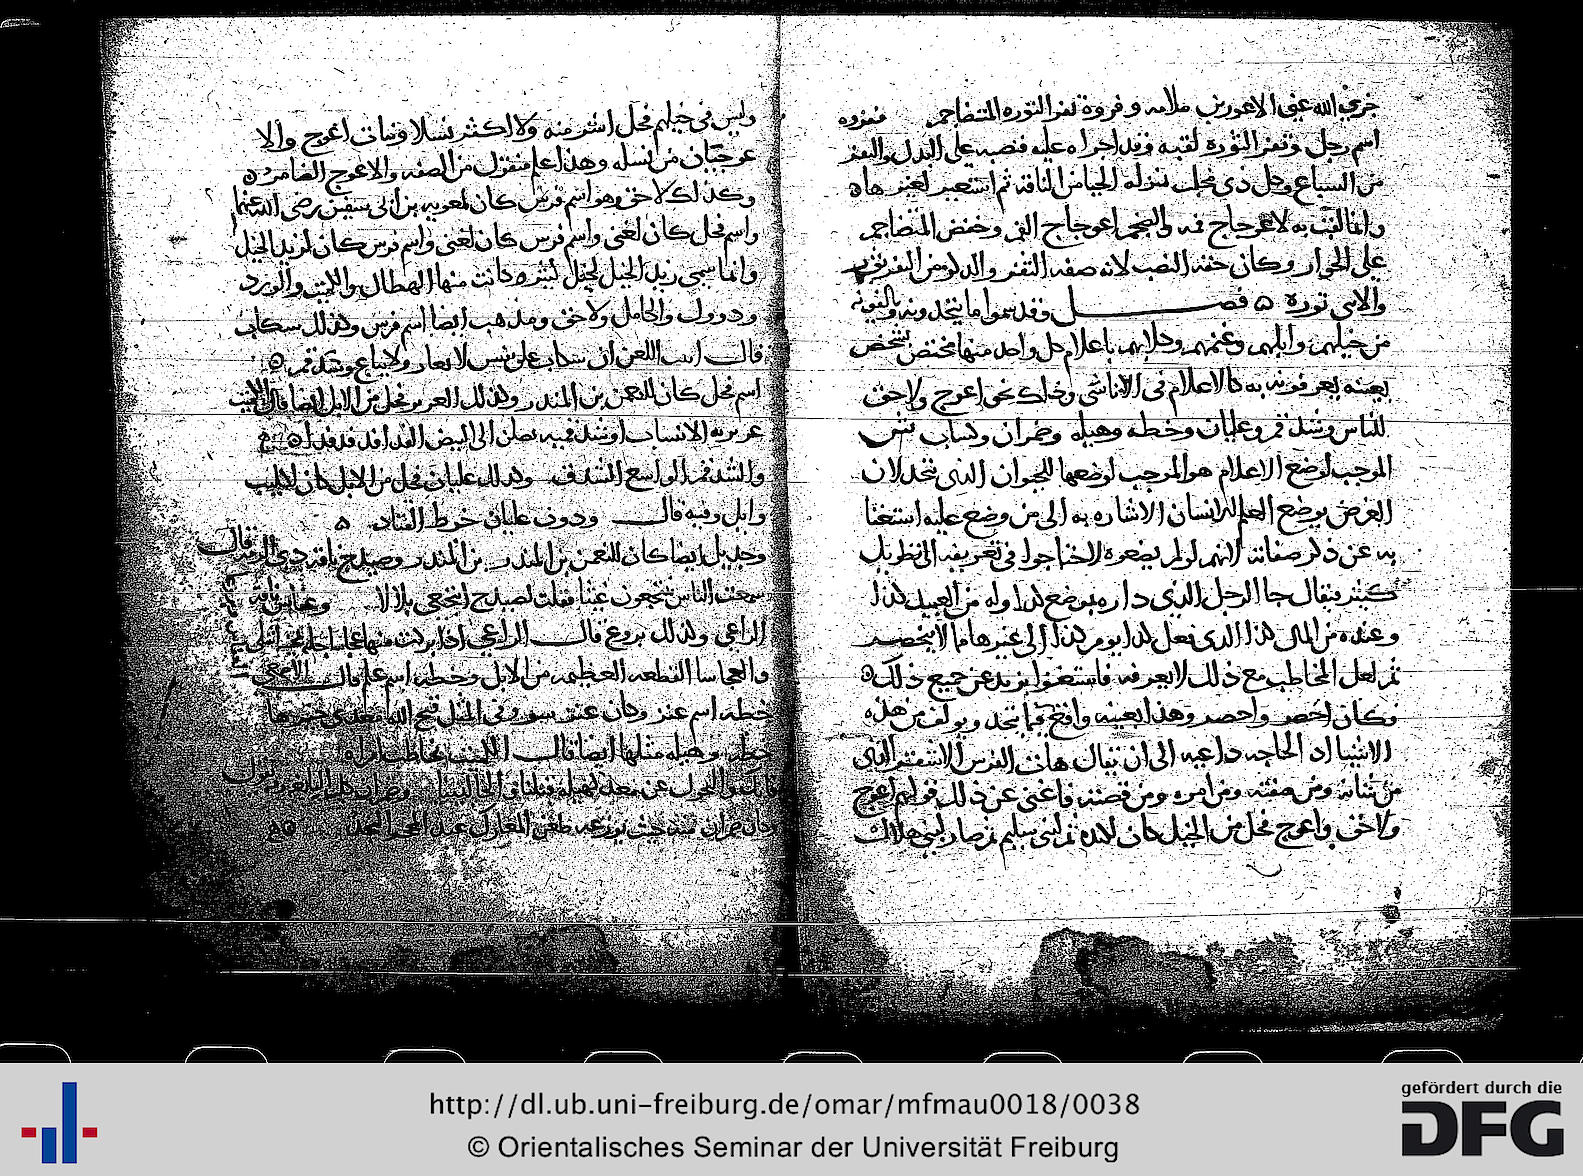 جزى الله عني الاعورين ملامه وفروة ثفر الثورة المتضاجم ففروه
اسم رجل وثفر الثورة لقبه وقد اجراه عليه فنصبه على البدل والثفر
من السباع وكل ذي مخلب بمنزله الحيا من الناقه ثم استعير لغيرها
وانما لقب به لاعوجاج فمه والضجم اعوجاج الفم وخفض المتضاجم
على الجوار وكان حقه النصب لانه صفه الثفر
والانثى ثورة فصل وقد سموا ما يتخذونه ويالفونه
من خيلهم وابلهم وغنمهم وكلابهم باعلام كل واحد منها مختص بشخص
بعينه يعرفونه به كالاعلام في الاناسي وذلك نحو اعوج ولاحق
وشدقم وعليان وخطه وهيله وضمران وكساب
الموجب لوضع الاعلام هو الموجب لوضعها للحيوان الذي يتخذ لان
الغرض بوضع العلم للانسان الاشاره به الى من وضع عليه استغنا
به عن ذكر صفاته لانهم لو لم يضعوه لاحتاجوا في تعريفه الى تطويل
كثير فيقال جا الرجل الذي داره بموضع كذا وله من العبيد كذا
وعنده من المال كذا الذي فعل كذا يوم كذا الى غيرها ما لا ينحصر
ثم لعل المخاطب مع ذلك لا يعرفه فاستغنوا بزيد عن جميع ذلك
وكان اخصر واحصر وهذا بعينه واقع فيما يتخذ ويولف من هذه
الاشيا اذ الحاجه داعيه الى ان يقال هات الفرس الاشقر الذي
من شانه ومن صفته ومن امره ومن قصته فاغنى عن ذلك قولهم اعوج
ولاحق واعوج فحل من الخيل كان لكنده ثم لبني سليم ثم صار لبني هلال
وليس في خيلهم فحل اشهر منه ولا اكثر نسلا وبنات اعوج والا
عوجيات من نسله وهذا علم منقول من الصفه والاعوج الضامر
وكذلك لاحق وهو اسم فرس كان لمعويه بن ابي سفين رضي الله عنهما
واسم فحل كان لغني واسم فرس كان لغني واسم فرس كان لزيد الخيل
وانما سمي زيد الخيل لخيل كثيره كانت منها الهطال والكميت والورد
ودوول والكامل ولاحق ومذهب ايضا اسم فرس وكذلك سكاب
قال ابيت اللعن ان سكاب علق نفيس لا يعار ولا يباع وشدقم
اسم فحل كان للنعمن بن المنذر وكذلك الغرير فحل من الابل ايضا قال الكميت
غريريه الانساب او شدقميه يصلن الى البيد الفدافد فدفدا
والشدقم الواسع الشدق وكذلك عليان فحل من الابل كان لكليب
وايل وفيه قال ودون عليان خرط القتاد
وجديل ايضا كان للنعمن بن المنذر وصيدح ناقه ذي الرمه قال
سمعت الناس ينتجعون غيثا فقلت لصيدح انتجعي بلالا
الراعي وكذلك بروع قال الراعي اذا بركت منها عجاسا جله
والعجاسا القطعه العظيمه من الابل وخطه اسم علم قال الاصمعي
خطه اسم عنز وكان عنز سوء وفي المثل قبح الله معزى خيرها
خطه وهيله مثلها ايضا قال الكميت يخاطب
وضمران كلب للنابغه
وكان ضمران منه حيث يوزعه طعن المعارك عند المحجر النجد
http://dl.ub.uni-freiburg.de/omar/mfmau0018/0038
© Orientalisches Seminar der Universität Freiburg
gefördert durch die
DFG